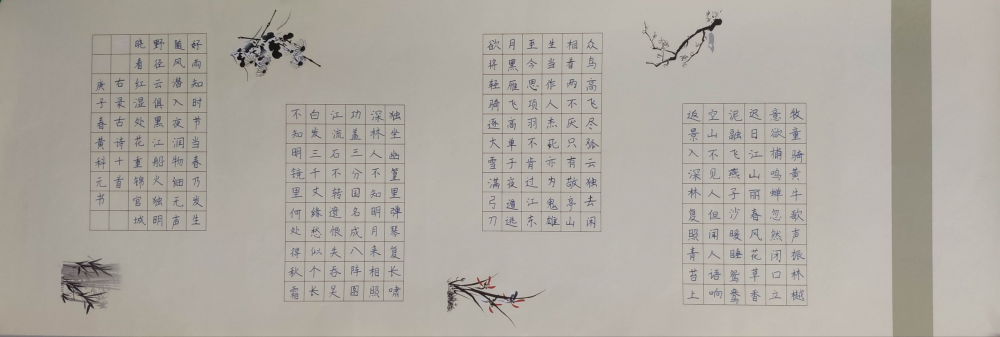 牧童骑黄牛歌声振林樾
意欲捕鸣蝉忽然闭口立
迟日江山丽春风花草香
泥融飞燕子沙暖睡鸳鸯
空山不见人但闻人语响
返景入深林复照青苔上
众鸟高飞尽孤云独去闲
相看两不厌只有敬亭山
生当作人杰死亦为鬼雄
至今思项羽不肯过江东
月黑雁飞高单于夜遁逃
欲将轻骑逐大雪满弓刀
独坐幽篁里弹琴复长啸
深林人不知明月来相照
功盖三分国名成八阵图
江流石不转遗恨失吞吴
白发三千丈缘愁似个长
不知明镜里何处得秋霜
好雨知时节当春乃发生
随风潜入夜润物细无声
野径云俱黑江船火独明
晓看红湿处花重锦官城
右录古诗十首
庚子春黄科元书